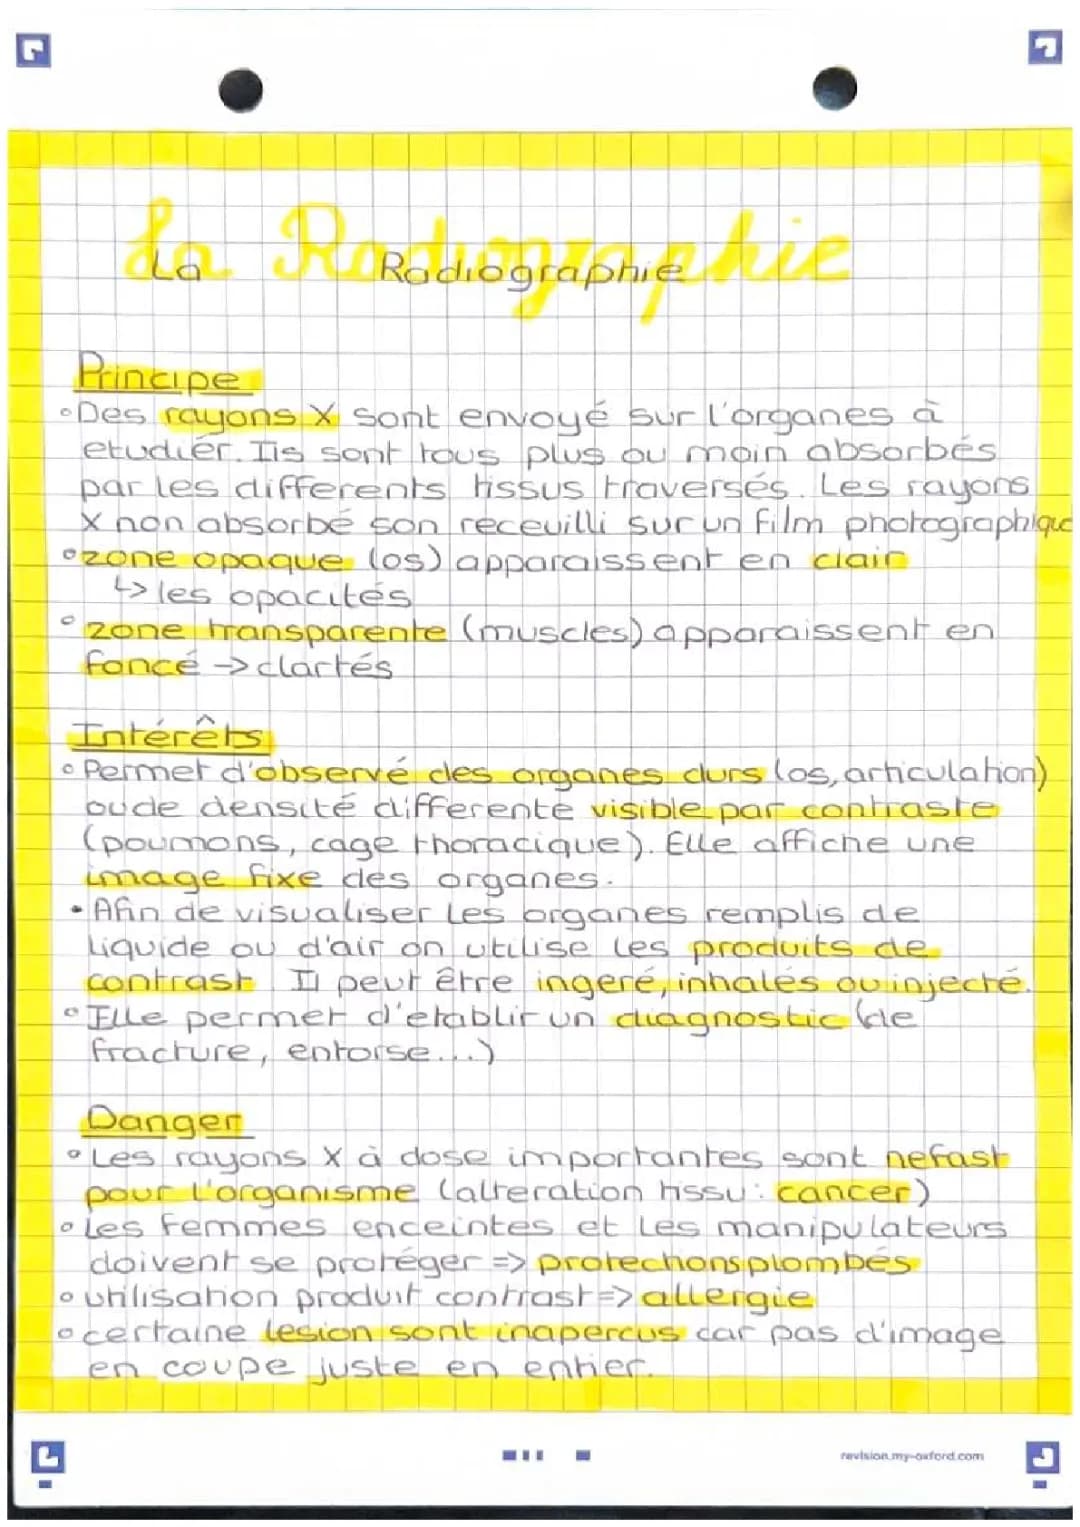 La Radiographie
La Radiographie
Principe
Des rayons X sont envoyé sur l'organes à
etudiér. Ils sont tous plus ou moin absorbés
par les differents tissus traversés. Les rayons
X non absorbé son receuilli sur un film photographique
zone opaque (os) apparaissent en clair
↳ les opacités
zone transparente (muscles) apparaissent en
foncé → clartés
Intérêts
Permet d'observé des organes durs (os, articulation)
ou de densité differente visible par contraste
(poumons, cage thoracique). Elle affiche une
image fixe des organes.
Afin de visualiser les organes remplis de
liquide ou d'air on utilise les produits de
contrast. Il peut être ingeré, inhalés ou injecté.
Elle permet d'etablir un diagnostic (de
fracture, entorse...)
Danger
Les rayons X à dose importantes sont nefast
pour l'organisme (alteration tissu: cancer)
les femmes enceintes et les manipulateurs
doivent se protéger => protections plombés
utilisation produit contrast => allergie
certaine lesion sont inapercus car pas d'image
en coupe juste en entier.
revision.my-oxford.com